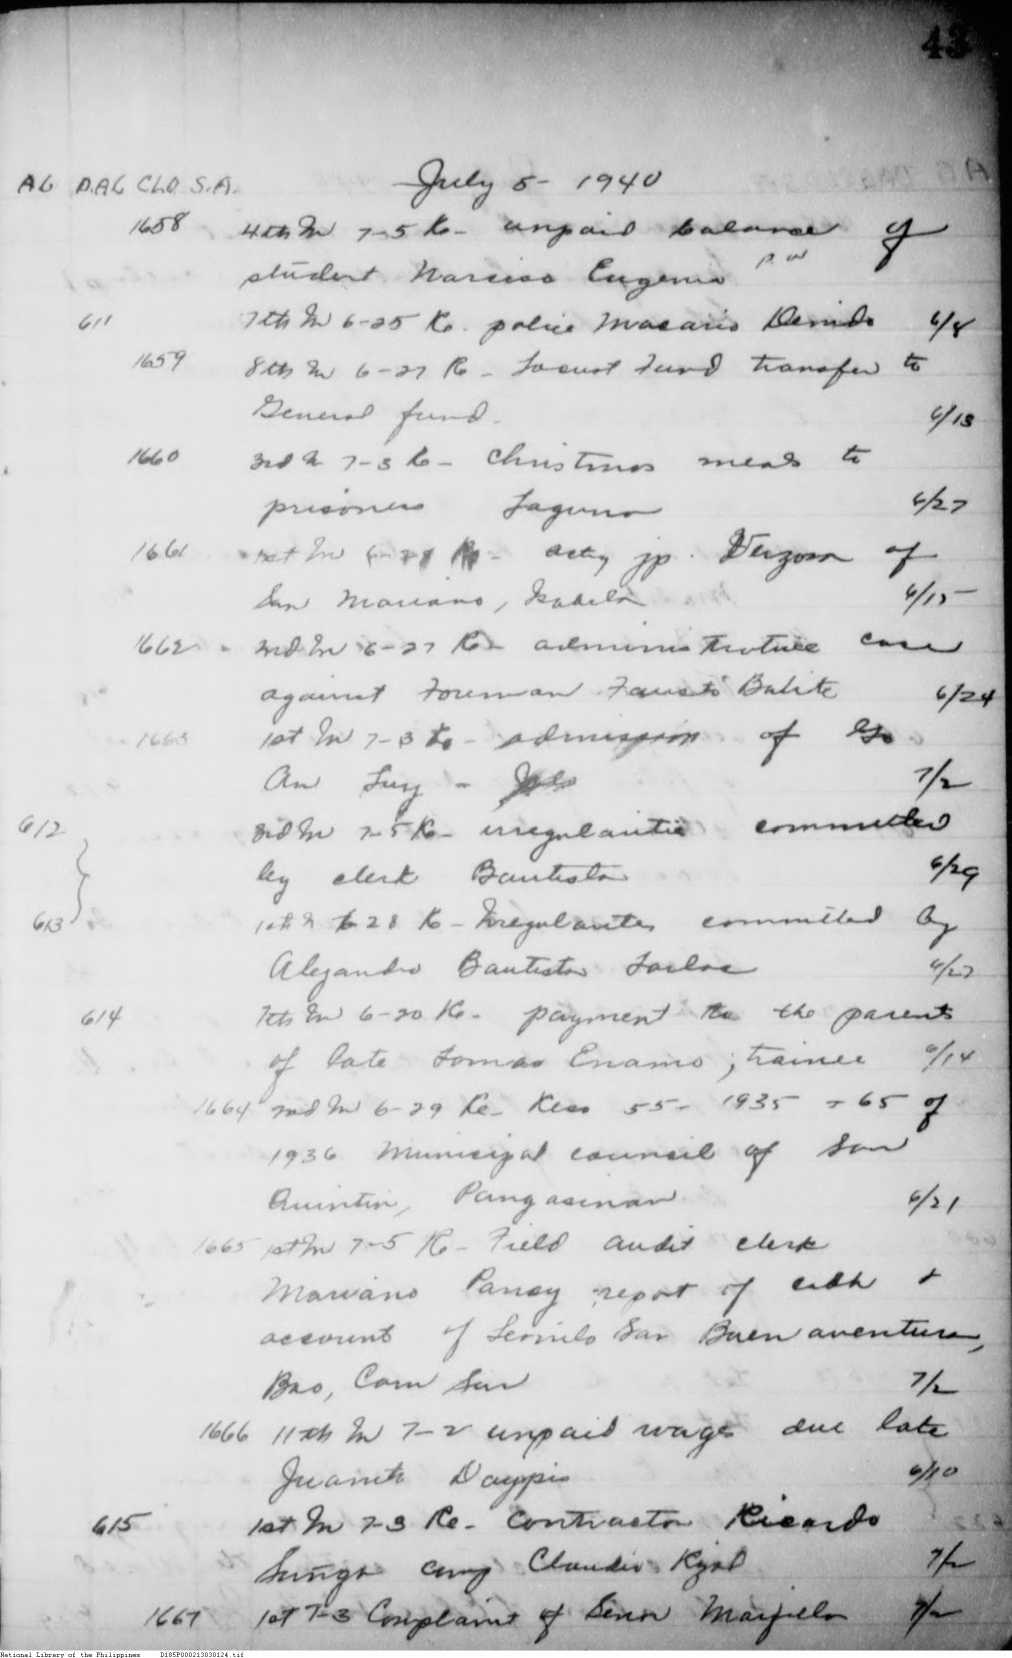 43
AG D.AG CLD S.A. July 5 - 1940
1658 4th In 7-5 Re - unpaid balance of
student Narciso Eugenio P.W
611 7th In 6-25 Re. police Macario 6/8
1659 8th In 6-27 Re - Locust Fund transfer to
General fund. 6/13
1660 3rd In 7-3 Re - Christmas meals to
prisoners Laguna 6/27
1661 1st In 6-28 Re - actg jp. Verzosa of
San Mariano, Isabela 6/15
1662 2nd In 6-27 Re - administrative case
against Foreman Fausto Balite 6/24
1663 1st In 7-3 Re - admission of Go
An 7/2
612 3rd In 7-5 Re - irregularitie committed
by clerk Bautista 6/29
613 1st In 6-28 Re - Irregularites committed by
Alejandro Bautista Tarlac 6/27
614 7th In 6-20 Re - payment to the parents
of late Tomas Enamo, trainee 6/14
1664 2nd In 6-29 Re - Reso 55 - 1935 + 65 of
1936 Municipal council of San
Quintin, Pangasinan 6/21
1665 1st In 7-5 Re - Field audit clerk
Mariano report of cash &
account of San Buenaventura,
Bao, Cam Sur 7/2
1666 11th In 7-2 unpaid wage due late
Juanito 6/10
615 1st In 7-3 Re - Contractor Ricardo
Sunga camp Claudio Rizal 7/2
1667 1st 7-3 Complaint of 7/2
National Library of the Philippines D185P000213030124.tif